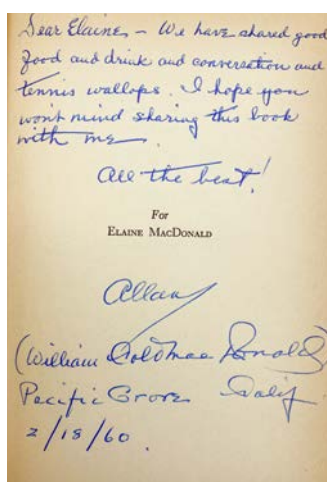 Dear Elaine – We have shared good
food and drink and conversation and
tennis wallops. I hope you
won't mind sharing this book
with me.
All the best!
For
ELAINE MACDONALD
Allan
(William Coldmac Donald)
Pacific Grove Calif
2/18/60.